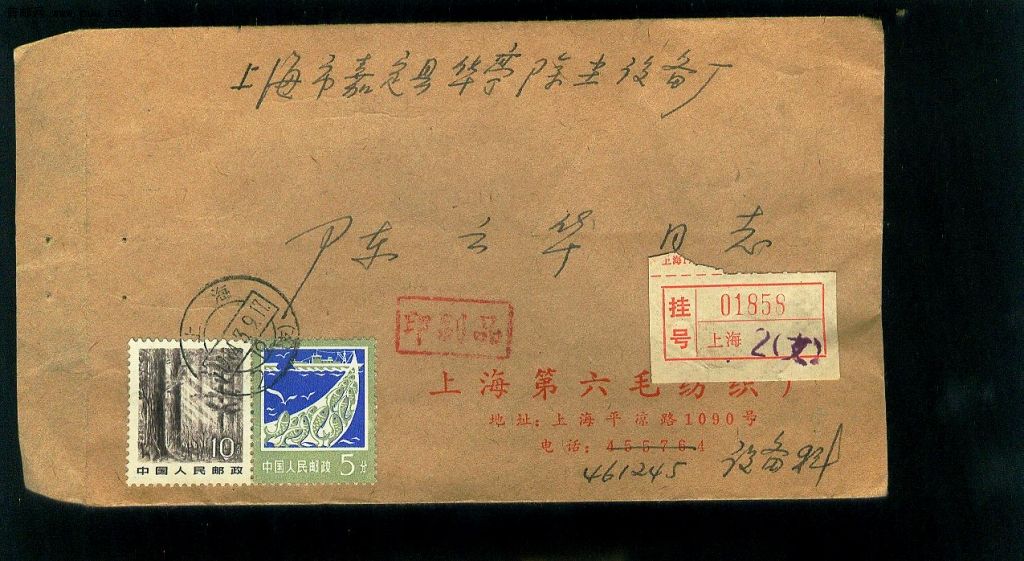 上海市嘉定县华亭除尘设备厂
尹东云华 同志
上海
印刷品
挂号
01858
上海 2(支)
10分
中国人民邮政
中国人民邮政 5分
上海第六毛纺织厂
地址:上海平凉路1090号
电话:455764
461245 设备科